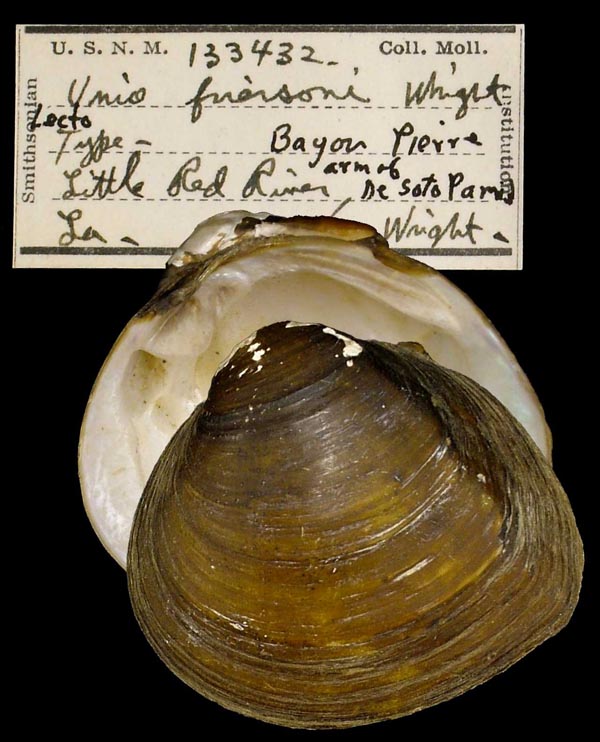 U. S. N. M. 133432. Coll. Moll.
Smithsonian
Unio friersoni Wright
Lecto
Type - Bayou Pierre
Little Red River arm of De Soto Par.
La. Wright.